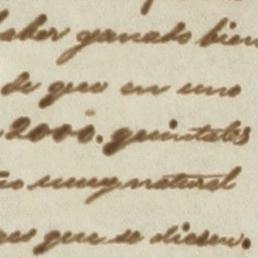 haber ganado bien
de que en uno
2000. quintales
muy natural
que se diesen.